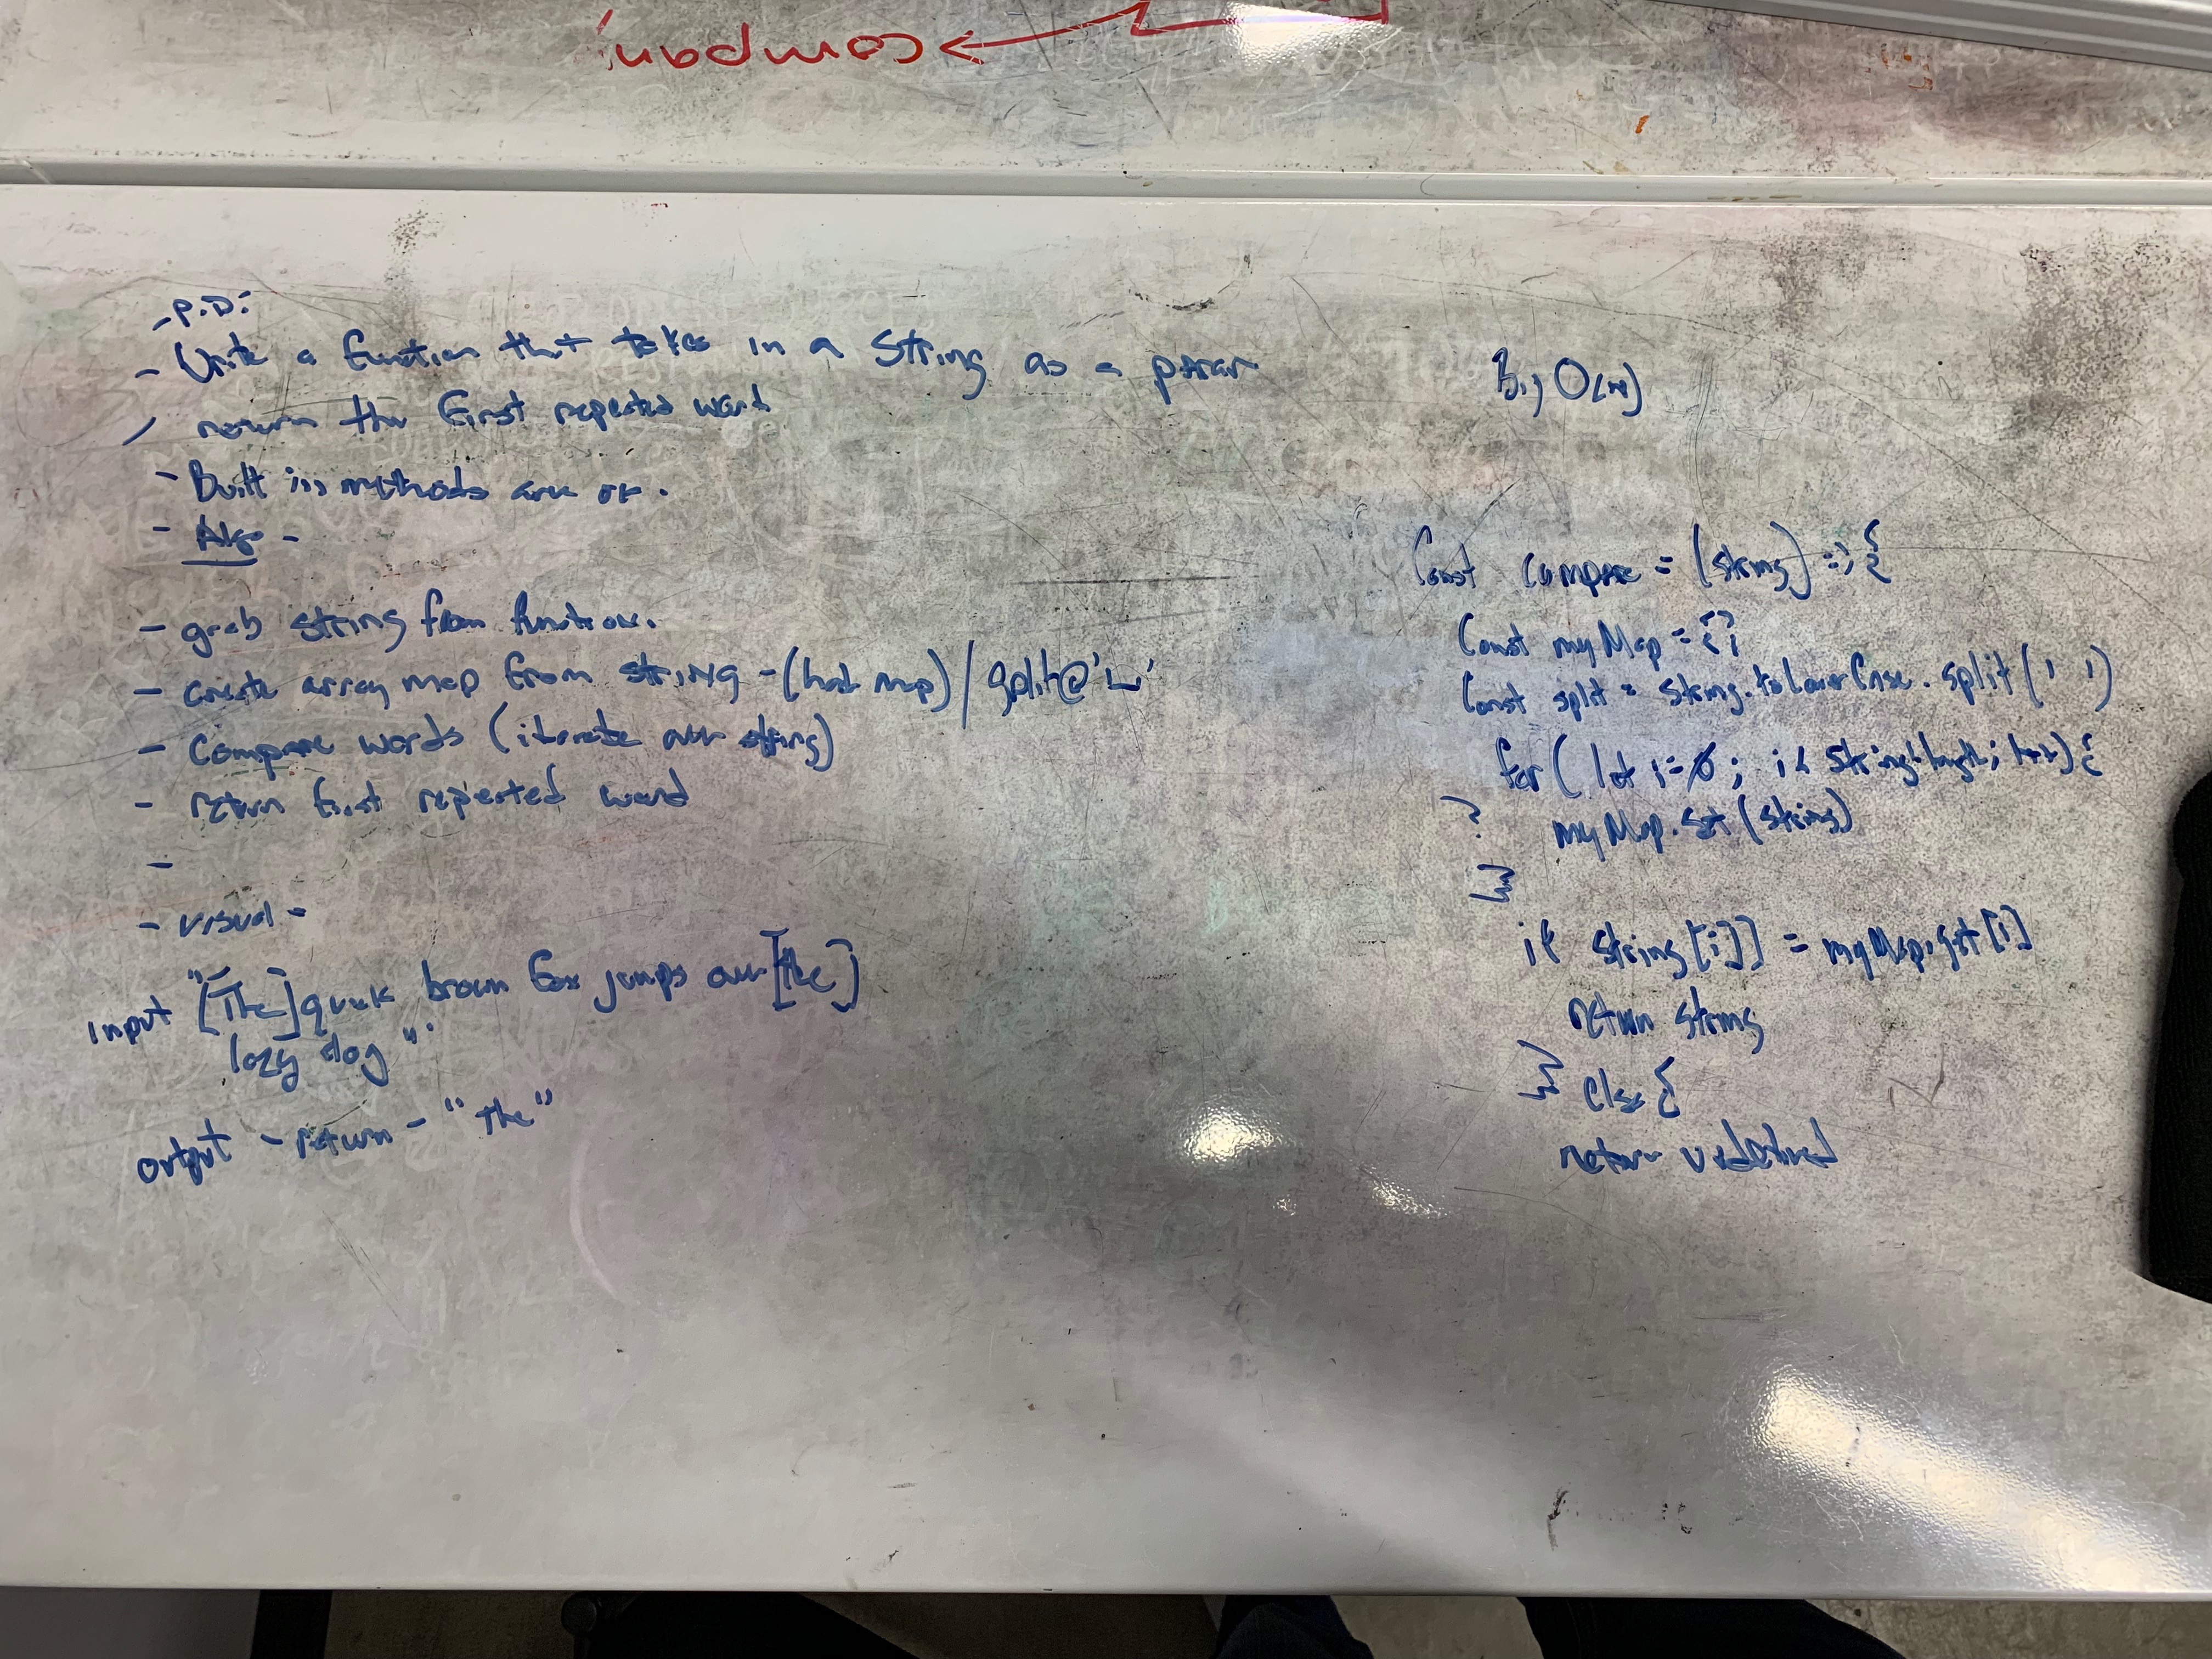 compan
- P.D:
- Write a function that takes in a string as a param
- return the first repeated word
- Built in methods are ok.
- Algo -
- grab string from function.
- create array map from string - (hash map) / split@' '
- Compare words (iterate over string)
- return first repeated word
-
- visual -
input "[The] quick brown fox jumps over [the]
lazy dog".
output - return - "the"
Big O(n)
Const compare = (string) => {
Const myMap = {};
Const split = string.toLowerCase.split(' ')
for( let i=0; i < string.length; i++) {
? myMap.set(string)
}
if string[i]] = myMap.get[i]
return string
} else {
return undefined